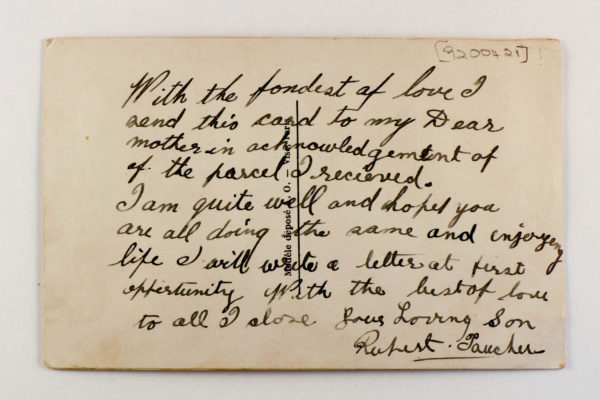 [9200421]
With the fondest of love I
send this card to my Dear
mother in acknowledgement of
of the parcel I recieved.
I am quite well and hopes you
are all doing the same and injoyeng
life I will write a letter at first
oppertunity With the best of love
to all I close your Loving Son
Rupert
Modèle déposé O. – Visé Paris